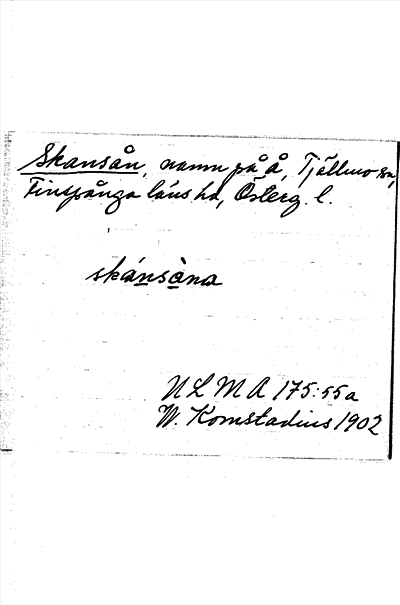 Skansån, namn på å, Tjällmo sn,
Finspånga läns hd, Österg. l.
skánsàna
ULMA 175:55a
W. Komstadius 1902